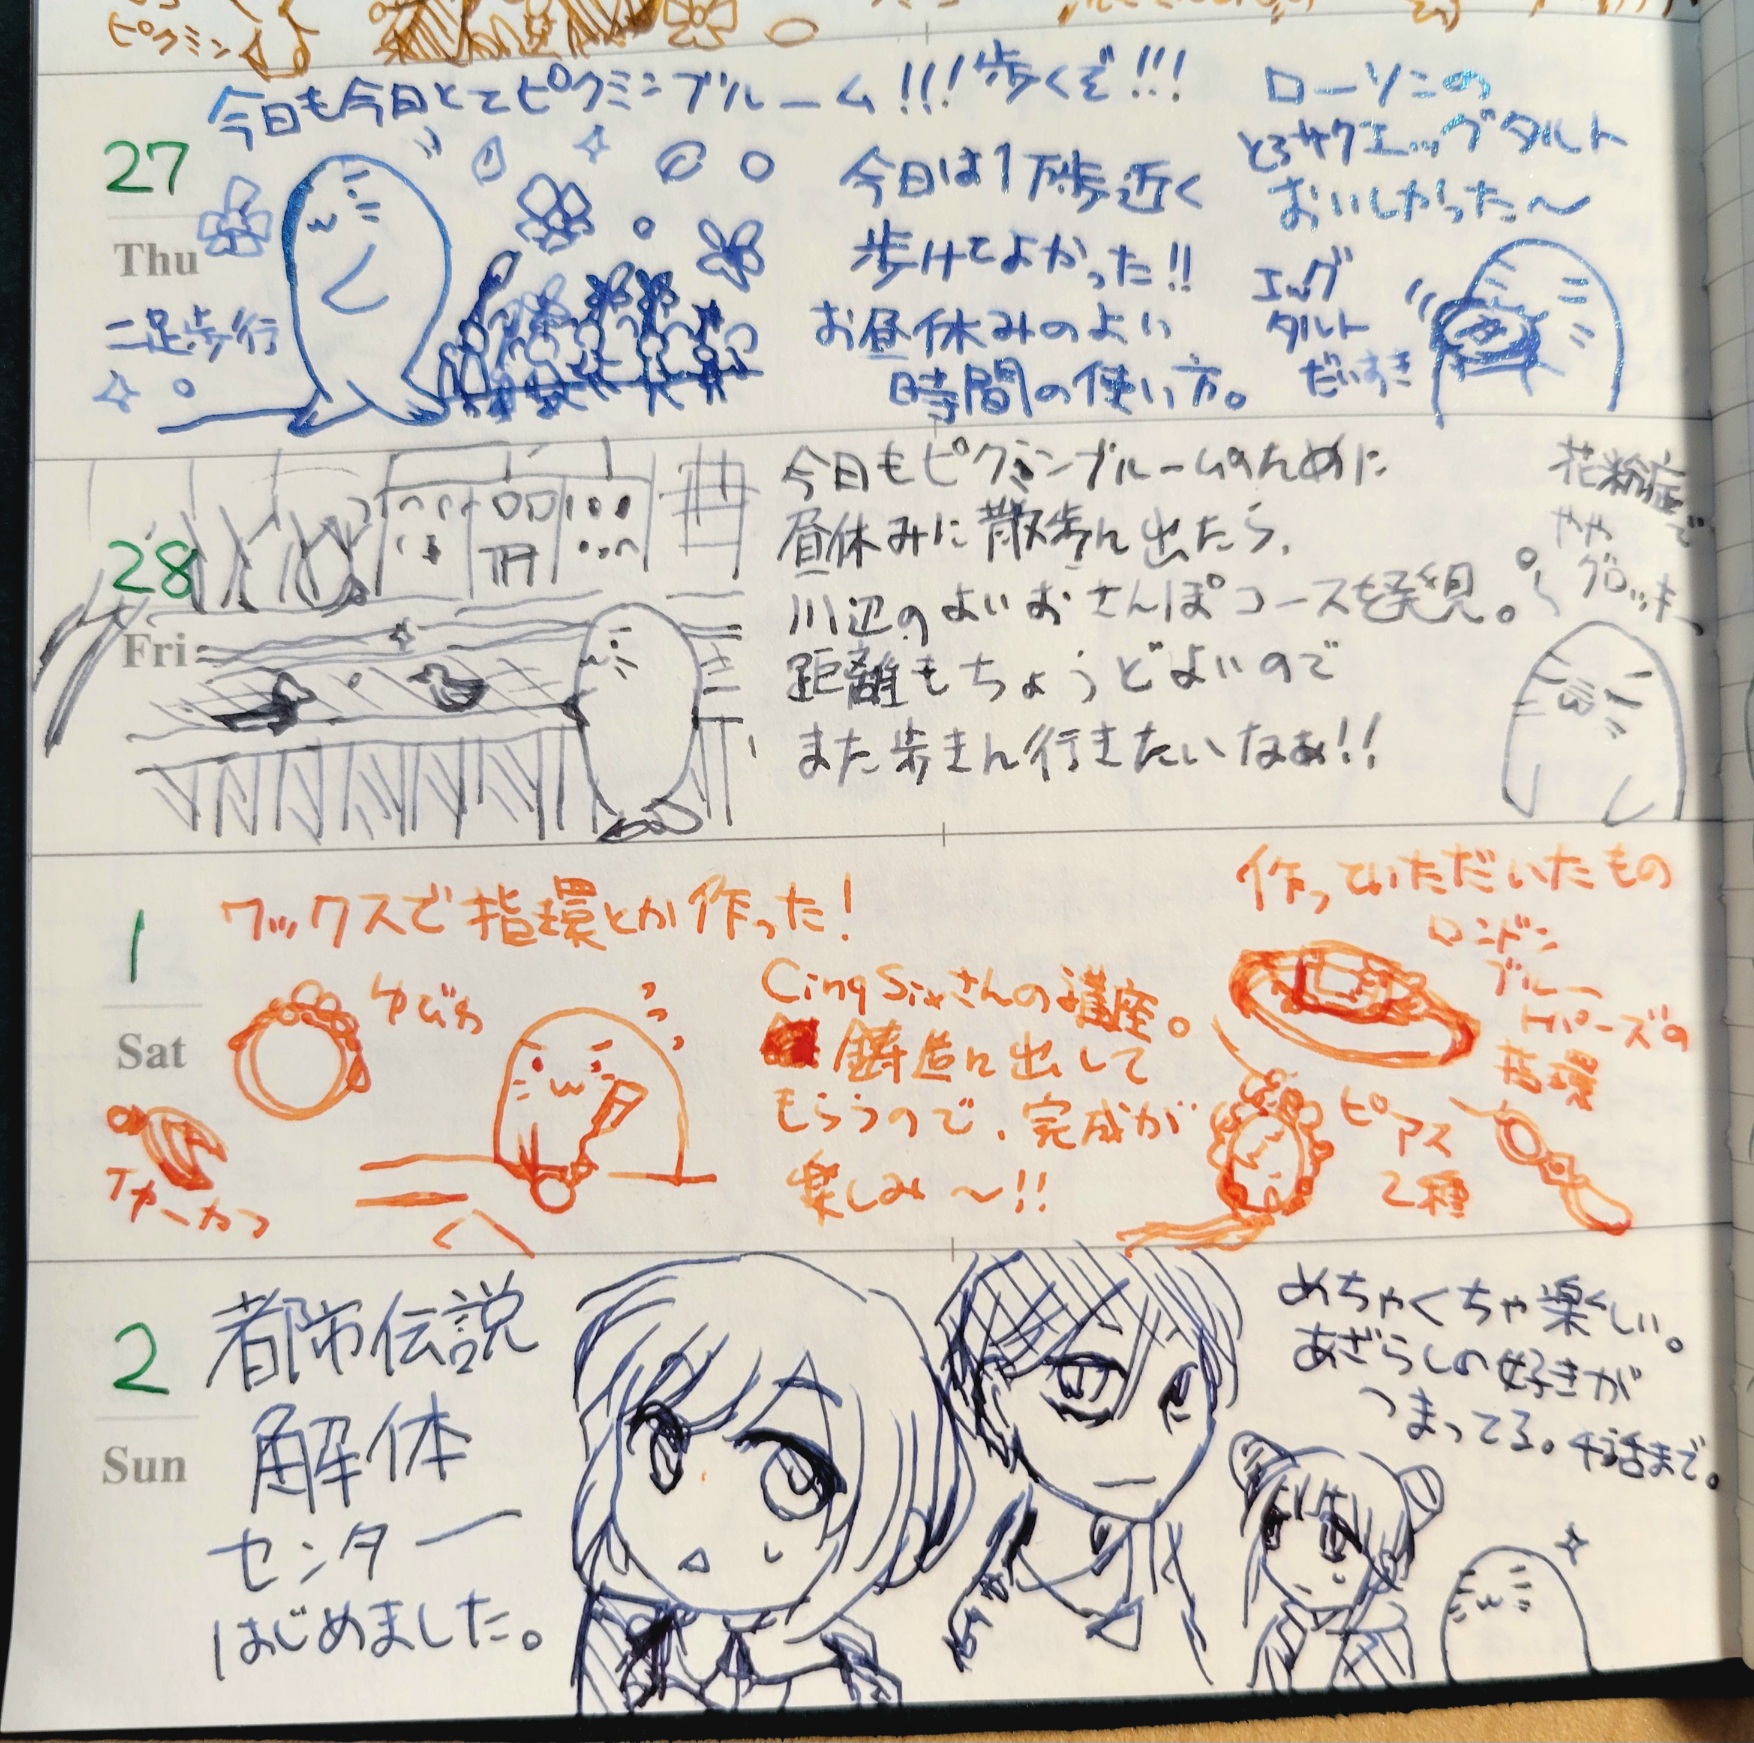 ピクミン
今日も今日とてピクミンブルーム!!!歩くぞ!!!
27
Thu
二足歩行
今日は1万歩近く
歩けてよかった!!
お昼休みのよい
時間の使い方。
ローソンの
とろサクエッグタルト
おいしかった〜
エッグ
タルト
だいすき
28
Fri
今日もピクミンブルームのために
昼休みに散歩に出たら、
川辺のよいおさんぽコースを発見。
距離もちょうどよいので
また歩きに行きたいなぁ!!
花粉症で
やや
グロッキー
1
Sat
ワックスで指環とか作った!
ゆびわ
イヤーカフ
Cinq Sixさんの講座。
鋳造に出して
もらうので、完成が
楽しみ〜!!
作っていただいたもの
ロンドン
ブルー
トパーズの
指環
ピアス
2種
2
Sun
都市伝説
解体
センター
はじめました。
めちゃくちゃ楽しい。
あざらしの好きが
つまってる。4話まで。